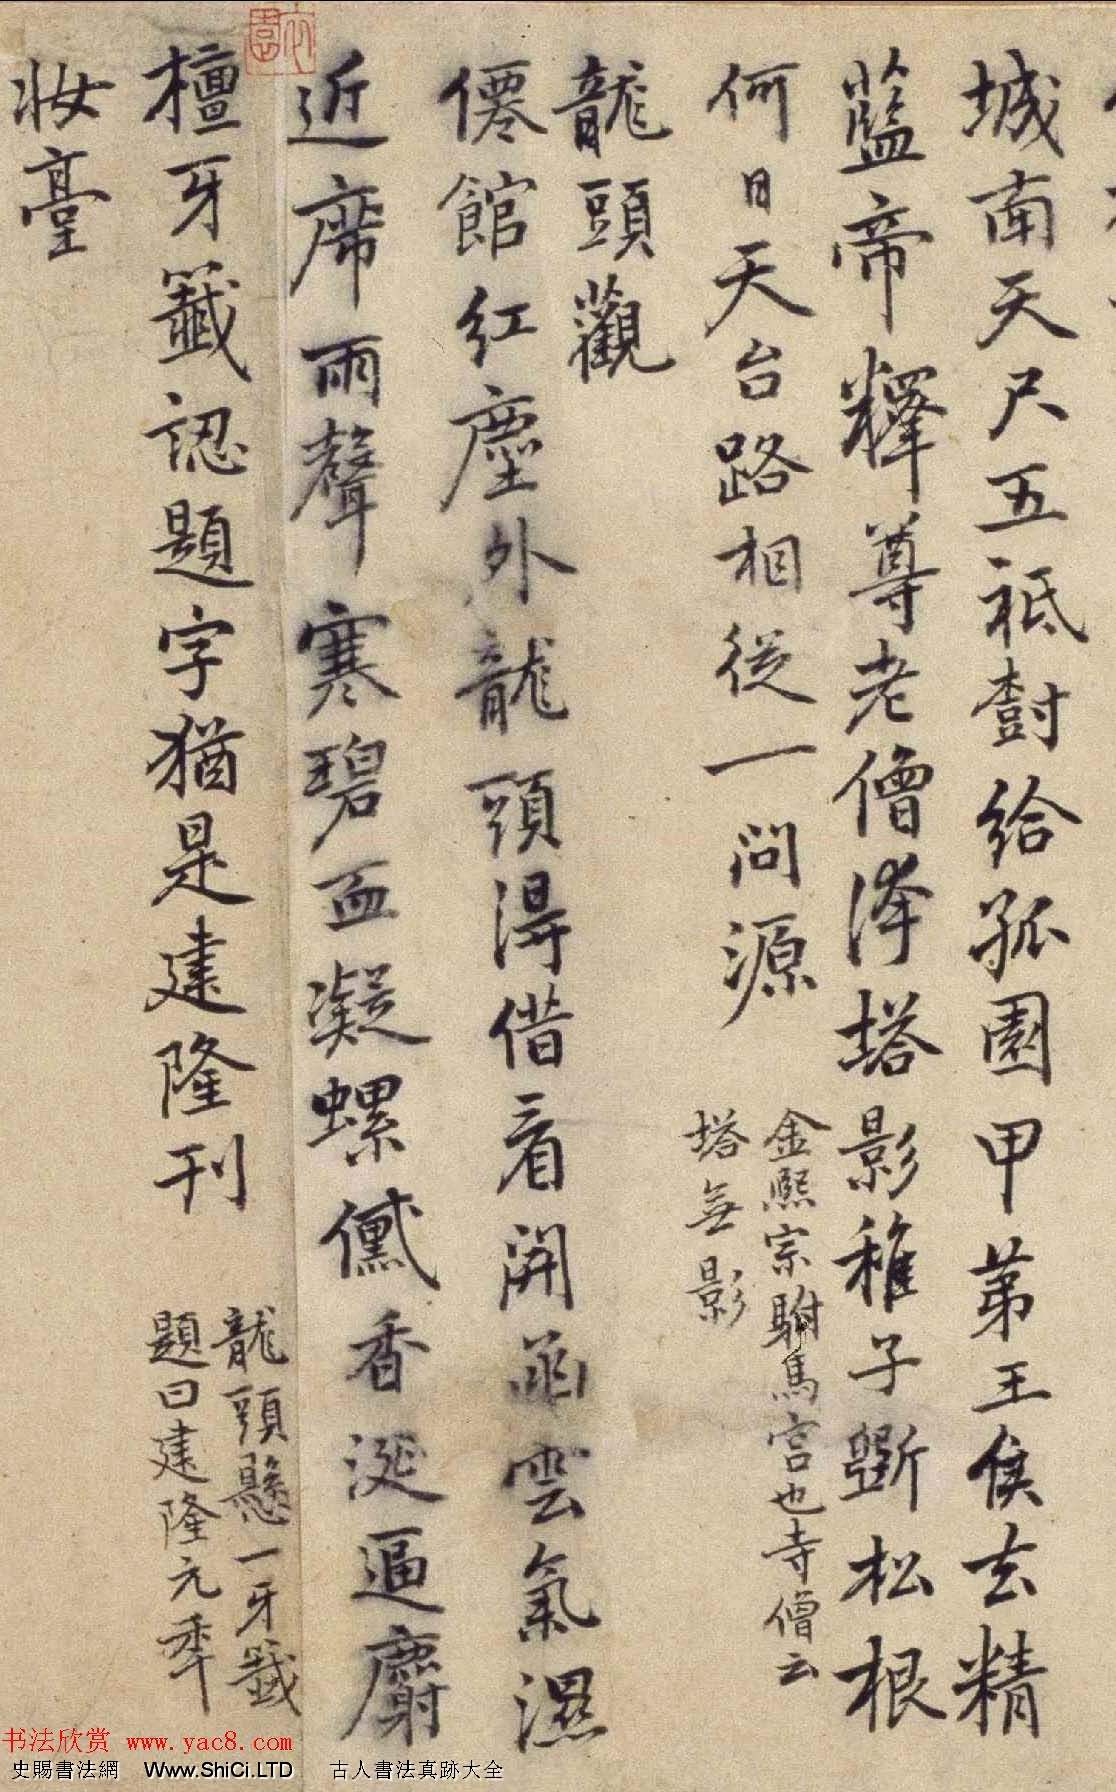 城南天尺五祗樹給孤園甲苐王侯去精
藍帝釋尊老僧泽塔影稚子斲松根
何日天台路相從一問源
金熙宗駙馬宫也寺僧云
塔無影
龍頭觀
僊館紅塵外龍頭得借看開函雲氣濕
近席雨聲寒碧血凝螺儎香涎逼麝
檀牙籤認題字猶是建隆刊
龍頭懸一牙籤
題曰建隆元年
妝臺
书法欣赏 www.yac8.com
史賜書法網 Www.ShiCi.LTD 古人書法真跡大全